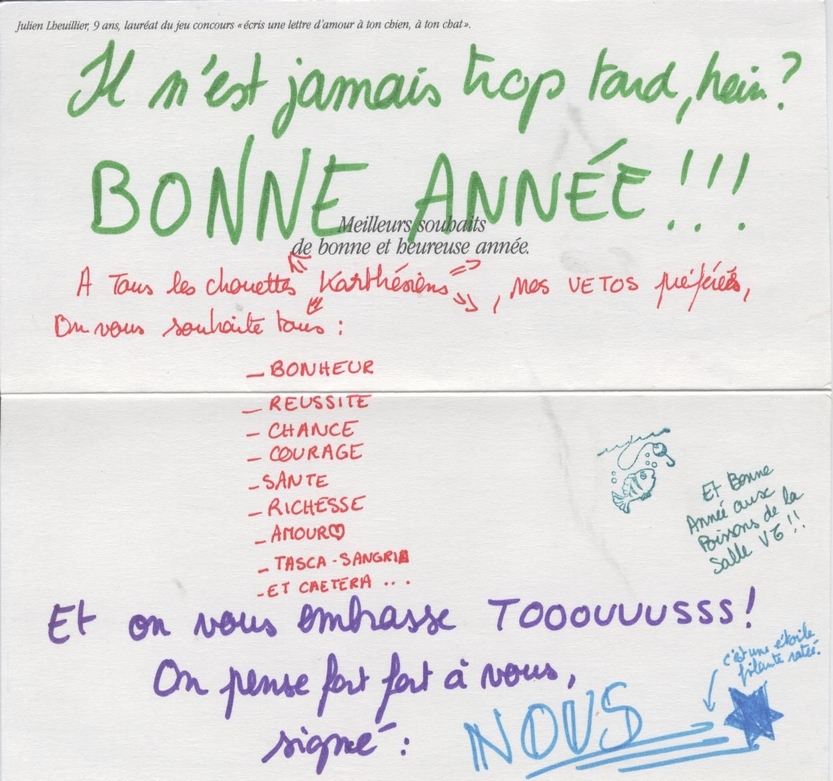 Julien Lheuillier, 9 ans, lauréat du jeu concours « écris une lettre d'amour à ton chien, à ton chat ».
Il n'est jamais trop tard, hein ?
BONNE ANNÉE !!!
Meilleurs souhaits
de bonne et heureuse année.
A tous les chouettes Karthésiens, nos VETOS préférés,
On vous souhaite tous :
- BONHEUR
- REUSSITE
- CHANCE
- COURAGE
- SANTE
- RICHESSE
- AMOUR♡
- TASCA-SANGRIA
- ET CAETERA ...
Et Bonne
Année aux
Poissons de la
Salle V6 !!
Et on vous embrasse TOOOUUUUSSS !
On pense fort fort à vous,
c'est une étoile
filante ratée.
signé : NOUS